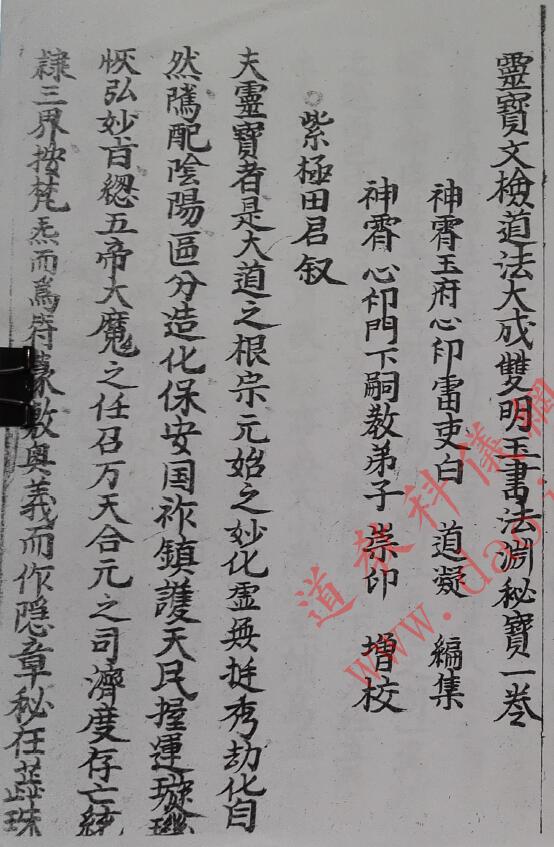 靈寶文檢道法大成雙明玉書法淵秘寶一卷
神霄玉府心印雷吏白 道凝 編集
神霄心印門下嗣教弟子 崇印 增校
紫極田君叙
夫靈寶者是大道之根宗元始之妙化虛無挺秀劫化自
然隲配陰陽區分造化保安国祚鎮護天民握運璇璣
恢弘妙旨緫五帝大魔之任召万天合元之司濟度存亡統
隸三界按梵炁而爲符篆敷奥義而作隐章秘在蘂珠
道教科儀網